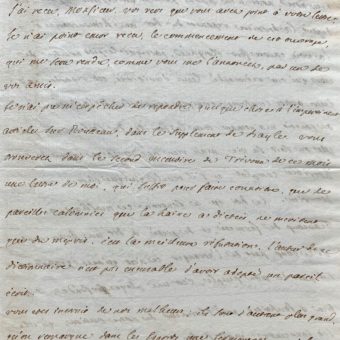 j'ai reçu, Monsieur, vos vers que vous avez joint à votre lettre,
Je n'ai point encor reçu, le commencement de cet ouvrage,
qui me sera rendu, comme vous me l'annoncez, par un de
vos amis.
Je n'ai pu m'empêcher de repondre quelque chose à l'impertinent
article sur Rousseau, dans le Supplement de Bayle; vous
trouverez dans le second mercure de de ce mois
une lettre de moi, qui suffit pour faire connoitre, que de
pareilles calomnies que la haine a dicté, ne meritent
que du mepris. c'est la meilleure refutation. l'auteur de ce
dictionnaire n'est pas excusable d'avoir adopté un pareil
écrit.
vous vous de nos malheurs; ils sont d'autant plus grands,
qu'on remarque dans les esprits une